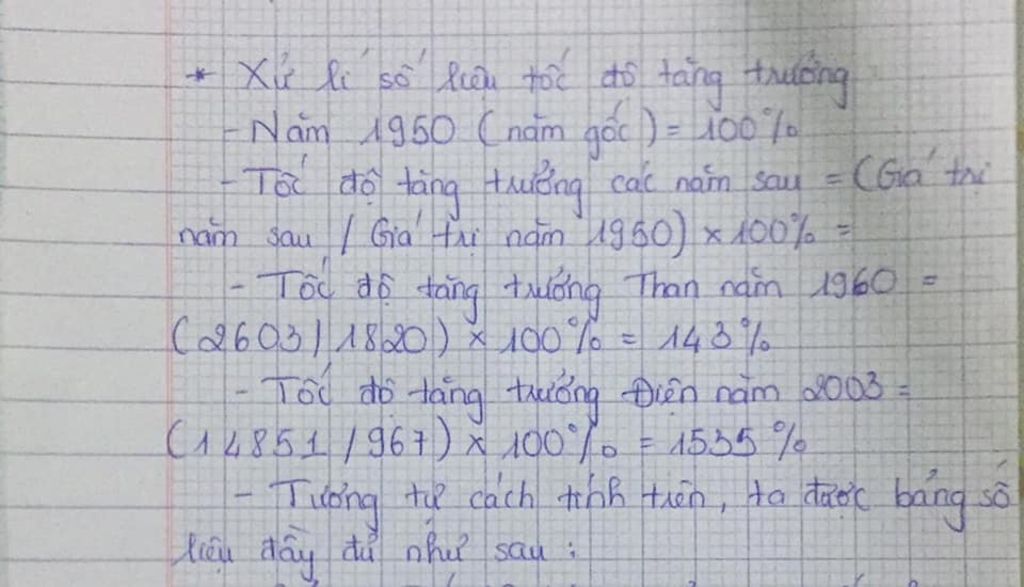 * Xử lí số liệu tốc độ tăng trưởng
- Năm 1950 (năm gốc) = 100%
- Tốc độ tăng trưởng các năm sau = (Giá trị
năm sau / Giá trị năm 1950) × 100% =
- Tốc độ tăng trưởng Than năm 1960 =
(2603/1820) × 100% = 143%
- Tốc độ tăng trưởng Điện năm 2003 =
(14851/967) × 100% = 1535%
- Tương tự cách tính trên, ta được bảng số
liệu đầy đủ như sau :